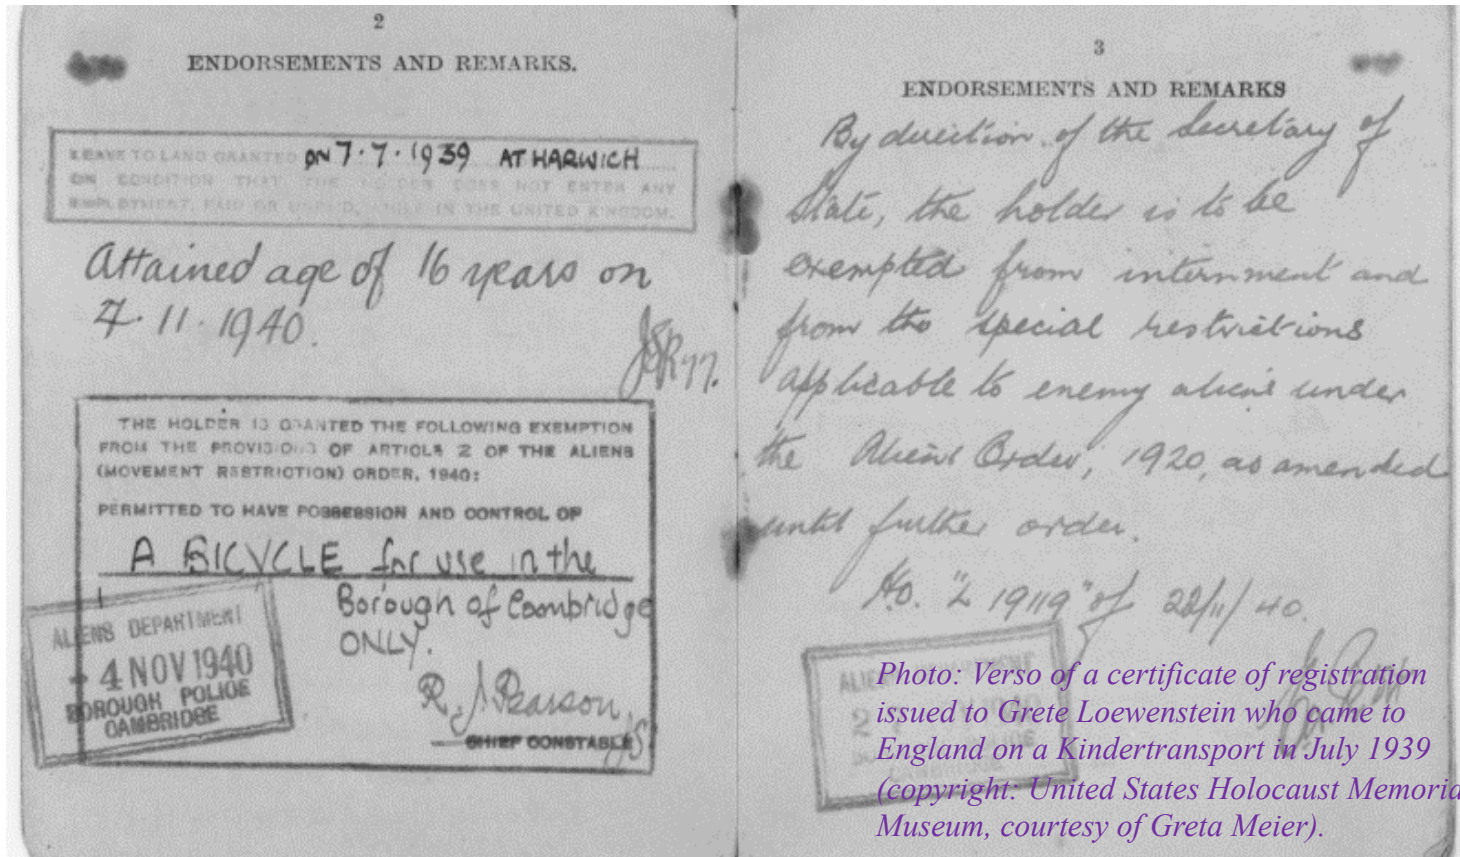 2
ENDORSEMENTS AND REMARKS.
LEAVE TO LAND GRANTED ON 7·7·1939 AT HARWICH
ON CONDITION THAT THE HOLDER DOES NOT ENTER ANY
EMPLOYMENT, PAID OR UNPAID, WHILE IN THE UNITED KINGDOM.
Attained age of 16 years on
4·11·1940.
THE HOLDER IS GRANTED THE FOLLOWING EXEMPTION
FROM THE PROVISIONS OF ARTICLE 2 OF THE ALIENS
(MOVEMENT RESTRICTION) ORDER, 1940:
PERMITTED TO HAVE POSSESSION AND CONTROL OF
A BICYCLE for use in the
Borough of Cambridge
ONLY.
R J Pearson
CHIEF CONSTABLE
ALIENS DEPARTMENT
- 4 NOV 1940
BOROUGH POLICE
CAMBRIDGE
3
ENDORSEMENTS AND REMARKS
By direction of the Secretary of
State, the holder is to be
exempted from internment and
from the special restrictions
applicable to enemy aliens under
the Aliens Order, 1920, as amended
until further order.
H.O. "L 19119" of 22/11/40.
Photo: Verso of a certificate of registration
issued to Grete Loewenstein who came to
England on a Kindertransport in July 1939
(copyright: United States Holocaust Memoria
Museum, courtesy of Greta Meier).